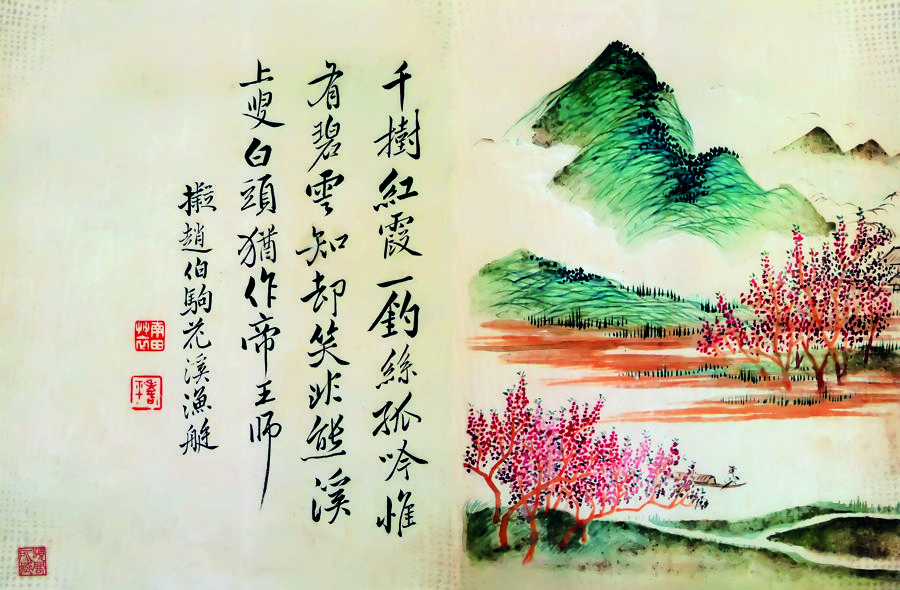 千樹紅霞一釣絲孤吟惟
有碧雲知却笑非熊溪
上叟白頭猶作帝王師
擬趙伯駒花溪漁艇
南田
艸衣
壽平